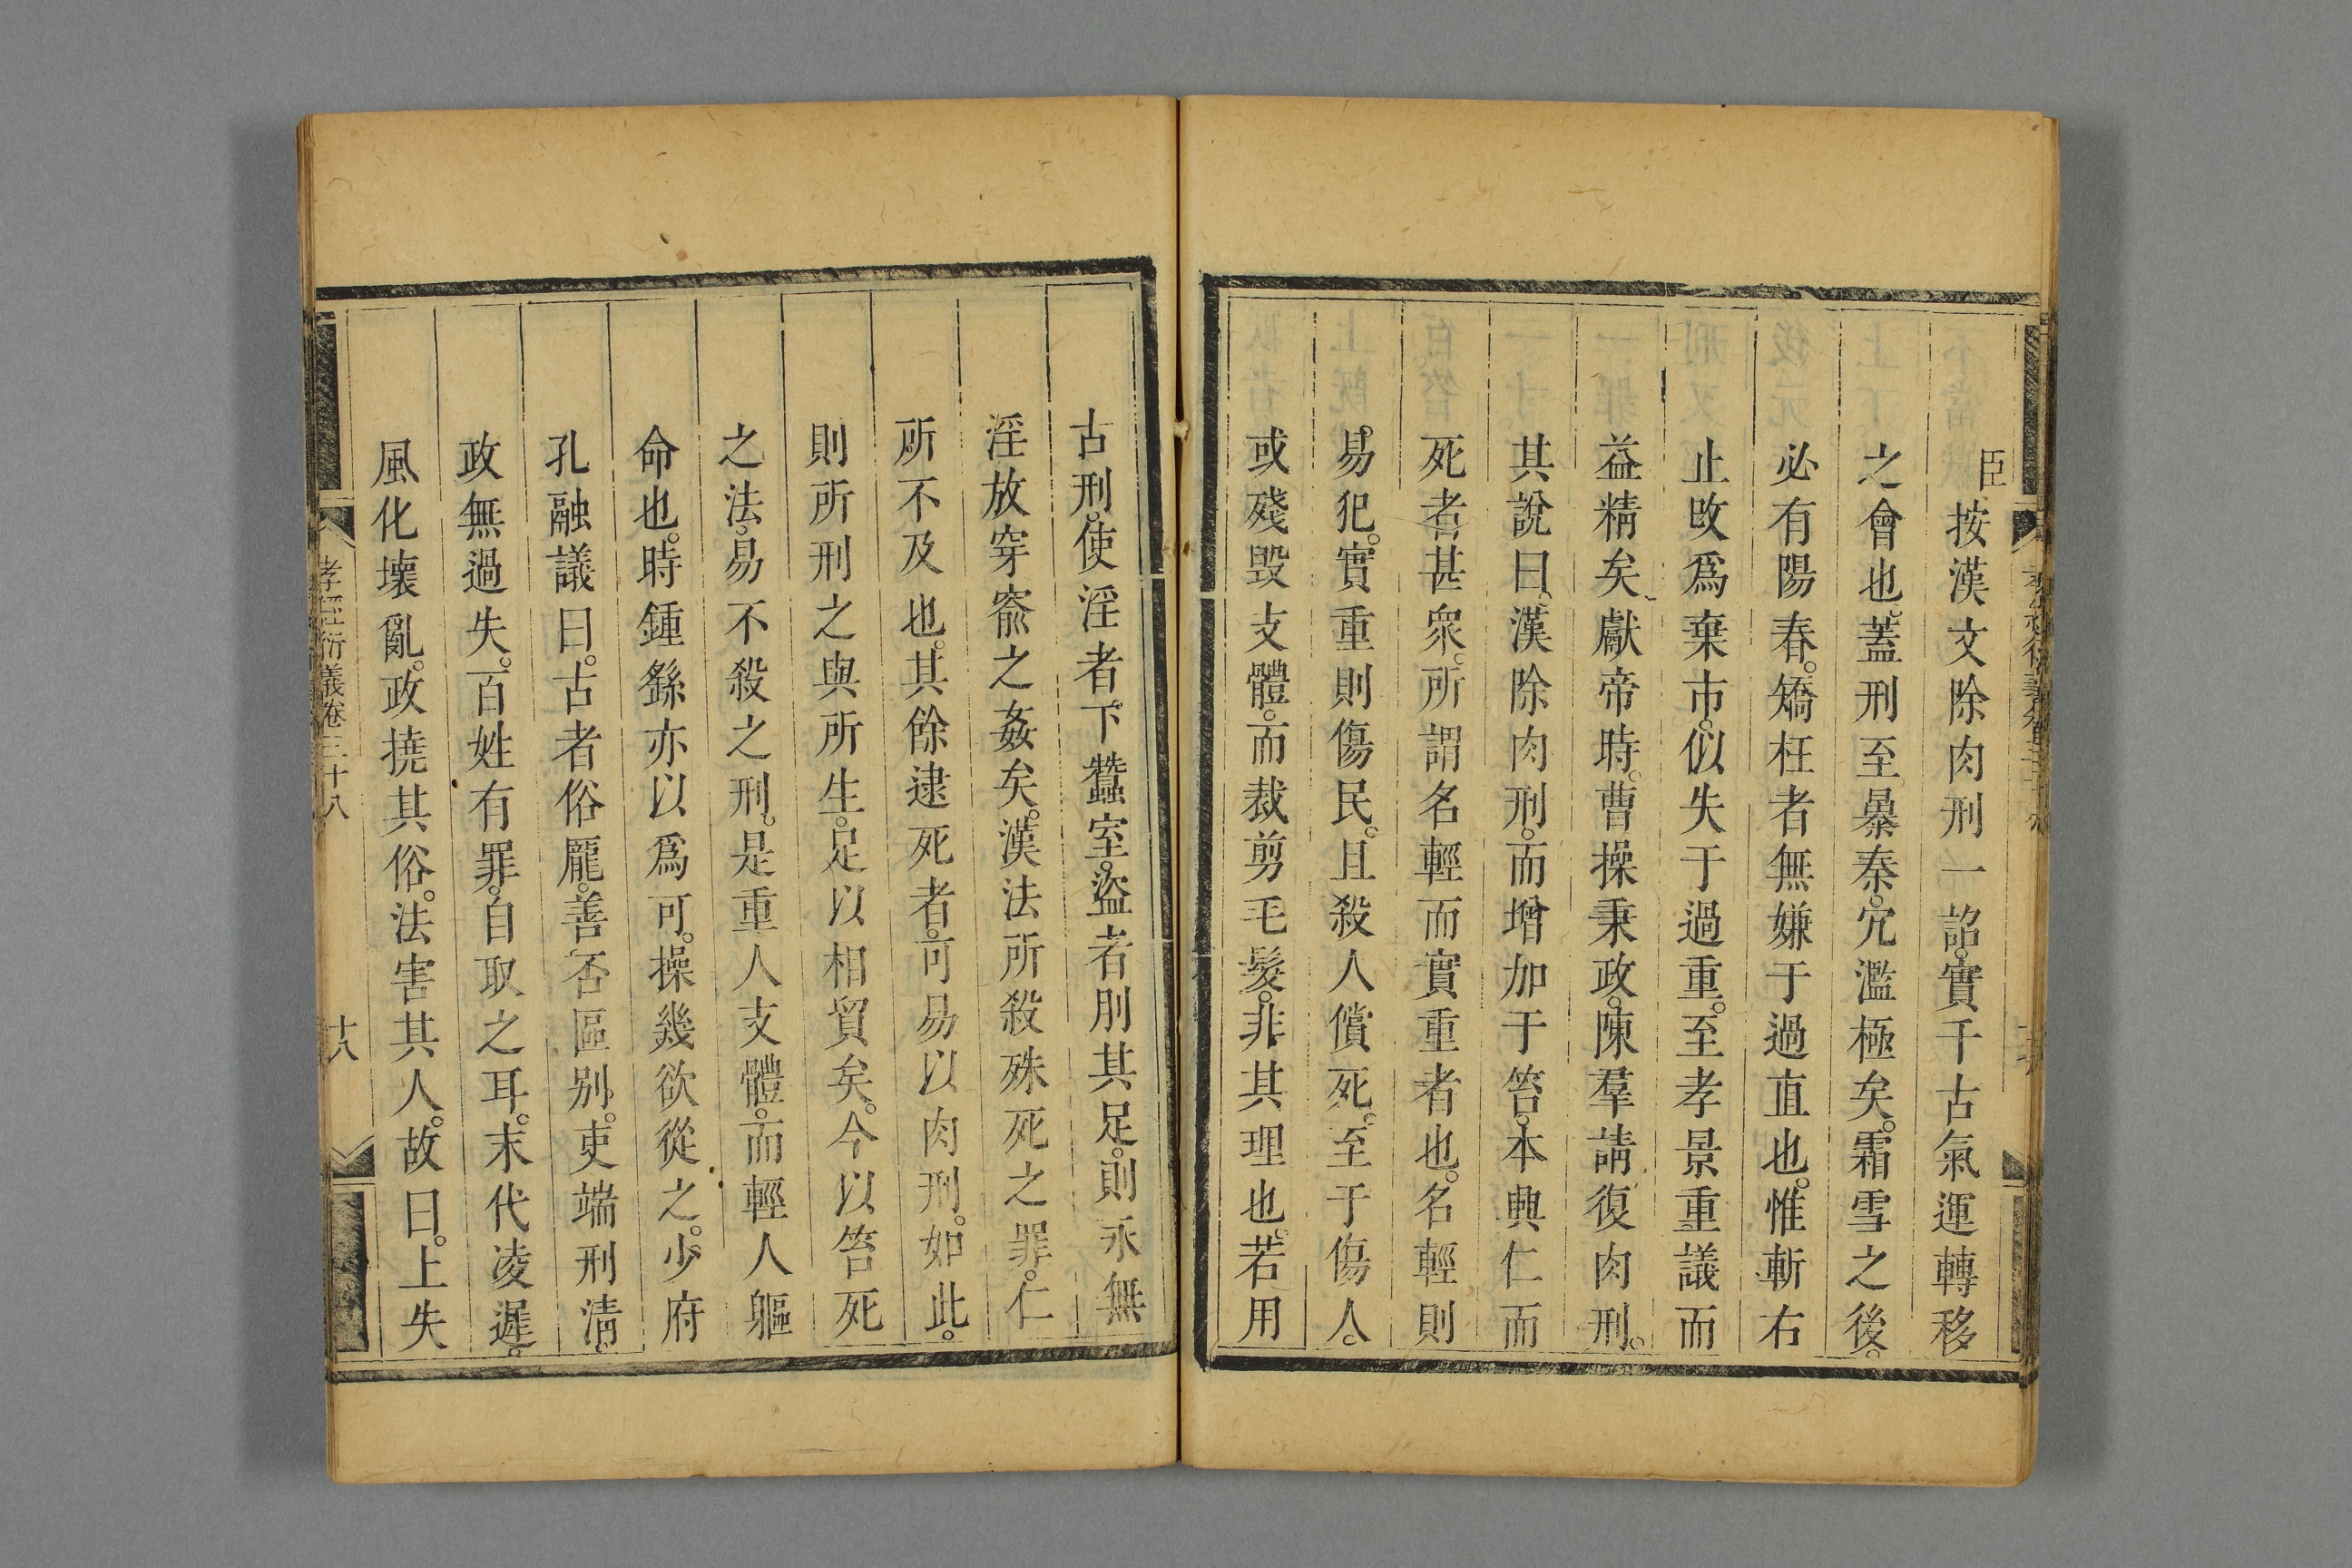 臣按漢文除肉刑一詔。實千古氣運轉移
之會也。蓋刑至暴秦。宂濫極矣。霜雪之後。
必有陽春。矯枉者無嫌于過直也。惟斬右
止改爲棄市。似失于過重。至孝景重議而
益精矣。獻帝時。曹操秉政。陳羣請復肉刑。
其說曰。漢除肉刑。而增加于笞。本興仁而
死者甚衆。所謂名輕而實重者也。名輕則
易犯。實重則傷民。且殺人償死。至于傷人。
或殘毀支體。而裁剪毛髮。非其理也。若用
古刑。使淫者下蠶室。盜者刖其足。則永無
淫放穿窬之姦矣。漢法所殺殊死之罪。仁
所不及也。其餘逮死者。可易以肉刑。如此。
則所刑之與所生。足以相貿矣。今以笞死
之法。易不殺之刑。是重人支體。而輕人軀
命也。時鍾繇亦以爲可。操幾欲從之。少府
孔融議曰。古者俗厖。善否區别。吏端刑清
政無過失。百姓有罪。自取之耳。末代凌遲。
風化壞亂。政撓其俗。法害其人。故曰。上失
孝經衍義卷三十八
十八